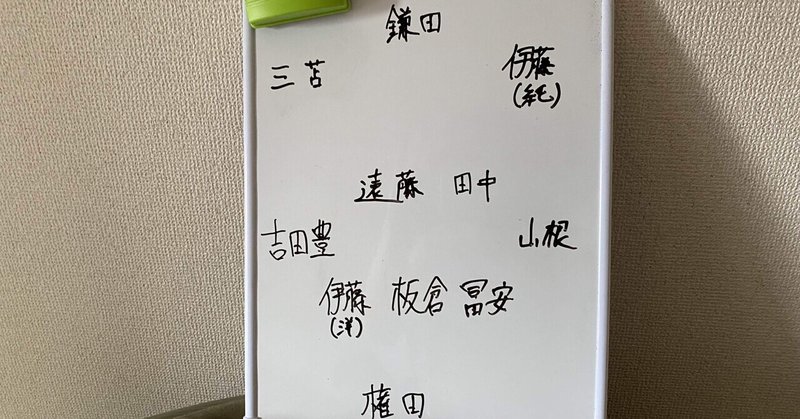 鎌田
三笘 伊藤
(純)
遠藤 田中
吉田豊 山根
伊藤 板倉 冨安
(洋)
権田